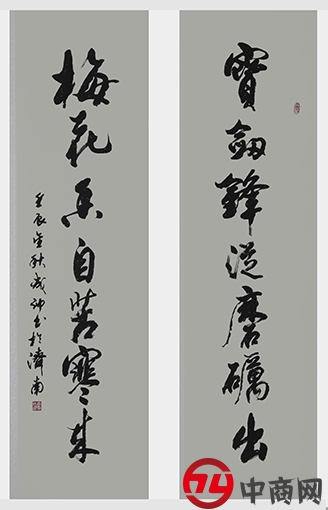 寶劍鋒從磨礪出
梅花香自苦寒來
壬辰金秋書於濟南
中商网